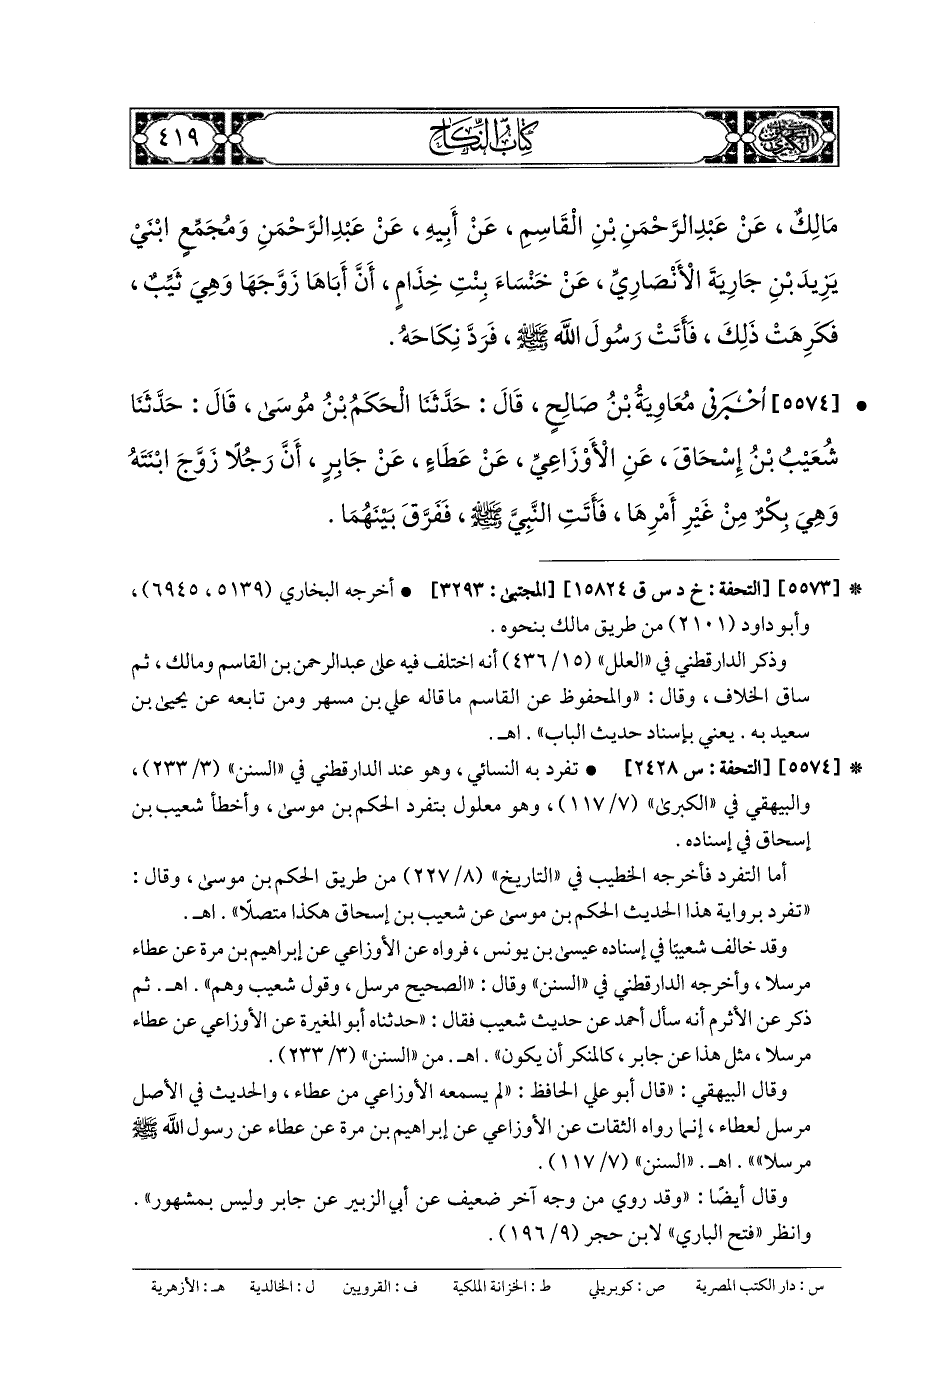 كتاب النكاح
٤١٩
مَالِكٌ ، عَنْ عَبْدِالرَّحْمَنِ بْنِ الْقَاسِمِ ، عَنْ أَبِيهِ ، عَنْ عَبْدِالرَّحْمَنِ وَمُجَمِّعٍ ابْنَيْ
يَزِيدَ بْنِ جَارِيَةَ الْأَنْصَارِيِّ ، عَنْ خَنْسَاءَ بِنْتِ خِذَامٍ ، أَنَّ أَبَاهَا زَوَّجَهَا وَهِيَ ثَيِّبٌ ،
فَكَرِهَتْ ذَلِكَ ، فَأَتَتْ رَسُولَ اللَّه ﷺ ، فَرَدَّ نِكَاحَهُ .
• [٥٥٧٤] أَخْبَرَنِي مُعَاوِيَةُ بْنُ صَالِحٍ ، قَالَ : حَدَّثَنَا الْحَكَمُ بْنُ مُوسَى ، قَالَ : حَدَّثَنَا
شُعَيْبُ بْنُ إِسْحَاقَ ، عَنِ الْأَوْزَاعِيِّ ، عَنْ عَطَاءٍ ، عَنْ جَابِرٍ ، أَنَّ رَجُلًا زَوَّجَ ابْنَتَهُ
وَهِيَ بِكْرٌ مِنْ غَيْرِ أَمْرِهَا ، فَأَتَتِ النَّبِيَّ ﷺ ، فَفَرَّقَ بَيْنَهُمَا .
* [٥٥٧٣] [التحفة : خ د س ق ١٥٨٢٤] [المجتبى : ٣٢٩٣] • أخرجه البخاري (٥١٣٩ ، ٦٩٤٥) ،
وأبو داود (٢١٠١) من طريق مالك بنحوه .
وذكر الدارقطني في «العلل» (١٥/ ٤٣٦) أنه اختلف فيه على عبدالرحمن بن القاسم ومالك ، ثم
ساق الخلاف ، وقال : «والمحفوظ عن القاسم ما قاله علي بن مسهر ومن تابعه عن يحيى بن
سعيد به . يعني بإسناد حديث الباب» . اهـ .
* [٥٥٧٤] [التحفة : س ٢٤٢٨] • تفرد به النسائي ، وهو عند الدارقطني في «السنن» (٣/ ٢٣٣) ،
والبيهقي في «الكبرى» (٧/ ١١٧) ، وهو معلول بتفرد الحكم بن موسى ، وأخطأ شعيب بن
إسحاق في إسناده .
أما التفرد فأخرجه الخطيب في «التاريخ» (٨/ ٢٢٧) من طريق الحكم بن موسى ، وقال :
«تفرد برواية هذا الحديث الحكم بن موسى عن شعيب بن إسحاق هكذا متصلًا» . اهـ .
وقد خالف شعيبًا في إسناده عيسى بن يونس ، فرواه عن الأوزاعي عن إبراهيم بن مرة عن عطاء
مرسلا ، وأخرجه الدارقطني في «السنن» وقال : «الصحيح مرسل ، وقول شعيب وهم» . اهـ . ثم
ذكر عن الأثرم أنه سأل أحمد عن حديث شعيب فقال : «حدثناه أبو المغيرة عن الأوزاعي عن عطاء
مرسلا ، مثل هذا عن جابر ، كالمنكر أن يكون» . اهـ . من «السنن» (٣/ ٢٣٣) .
وقال البيهقي : «قال أبو علي الحافظ : «لم يسمعه الأوزاعي من عطاء ، والحديث في الأصل
مرسل لعطاء ، إنما رواه الثقات عن الأوزاعي عن إبراهيم بن مرة عن عطاء عن رسول الله ﷺ
مرسلا»» . اهـ . «السنن» (٧/ ١١٧) .
وقال أيضًا : «وقد روي من وجه آخر ضعيف عن أبي الزبير عن جابر وليس بمشهور» .
وانظر «فتح الباري» لابن حجر (٩/ ١٩٦) .
س : دار الكتب المصرية ص : كوبريلي ط : الخزانة الملكية ف : القرويين ل : الخالدية هـ : الأزهرية